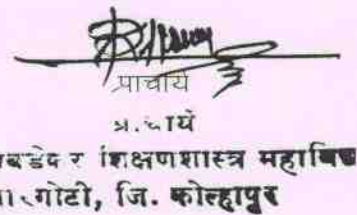 प्राचार्य
प्राचार्य
शिक्षणशास्त्र महाविद्य
गोटी, जि. कोल्हापुर